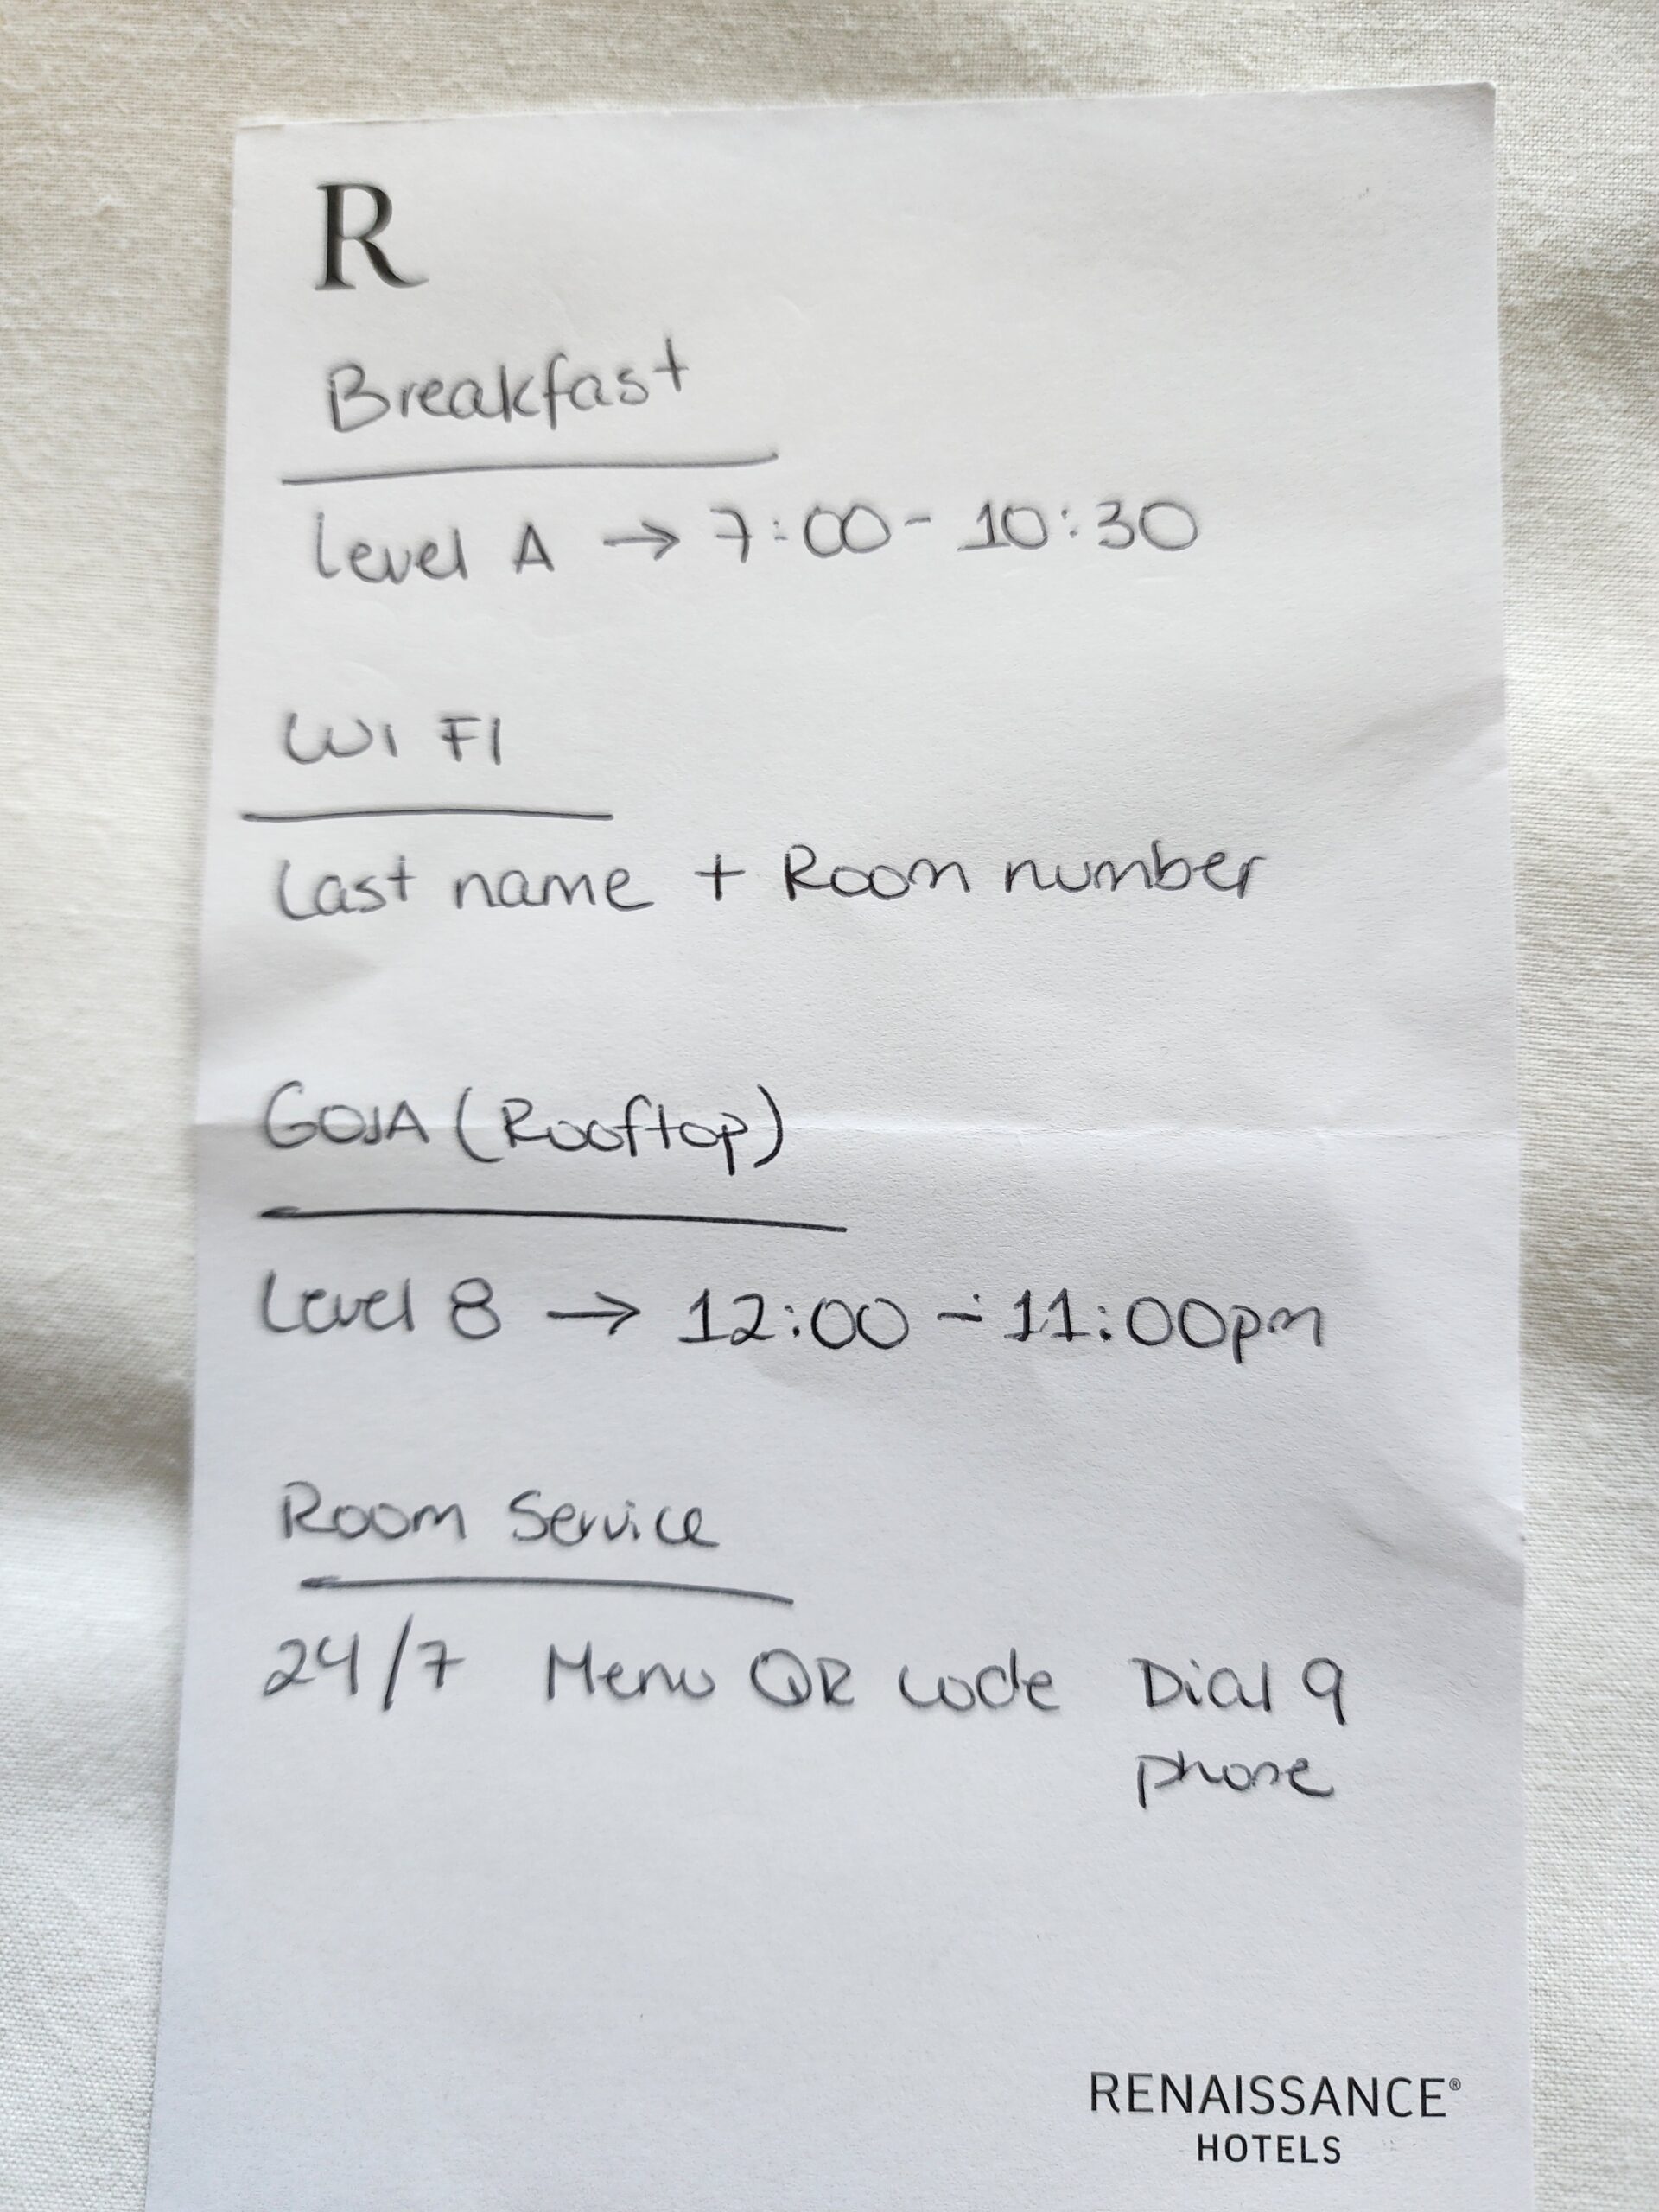 R
Breakfast
Level A → 7:00 - 10:30
WIFI
Last name + Room number
GOJA (Rooftop)
Level 8 → 12:00 - 11:00pm
Room Service
24/7 Menu QR code Dial 9
phone
RENAISSANCE®
HOTELS